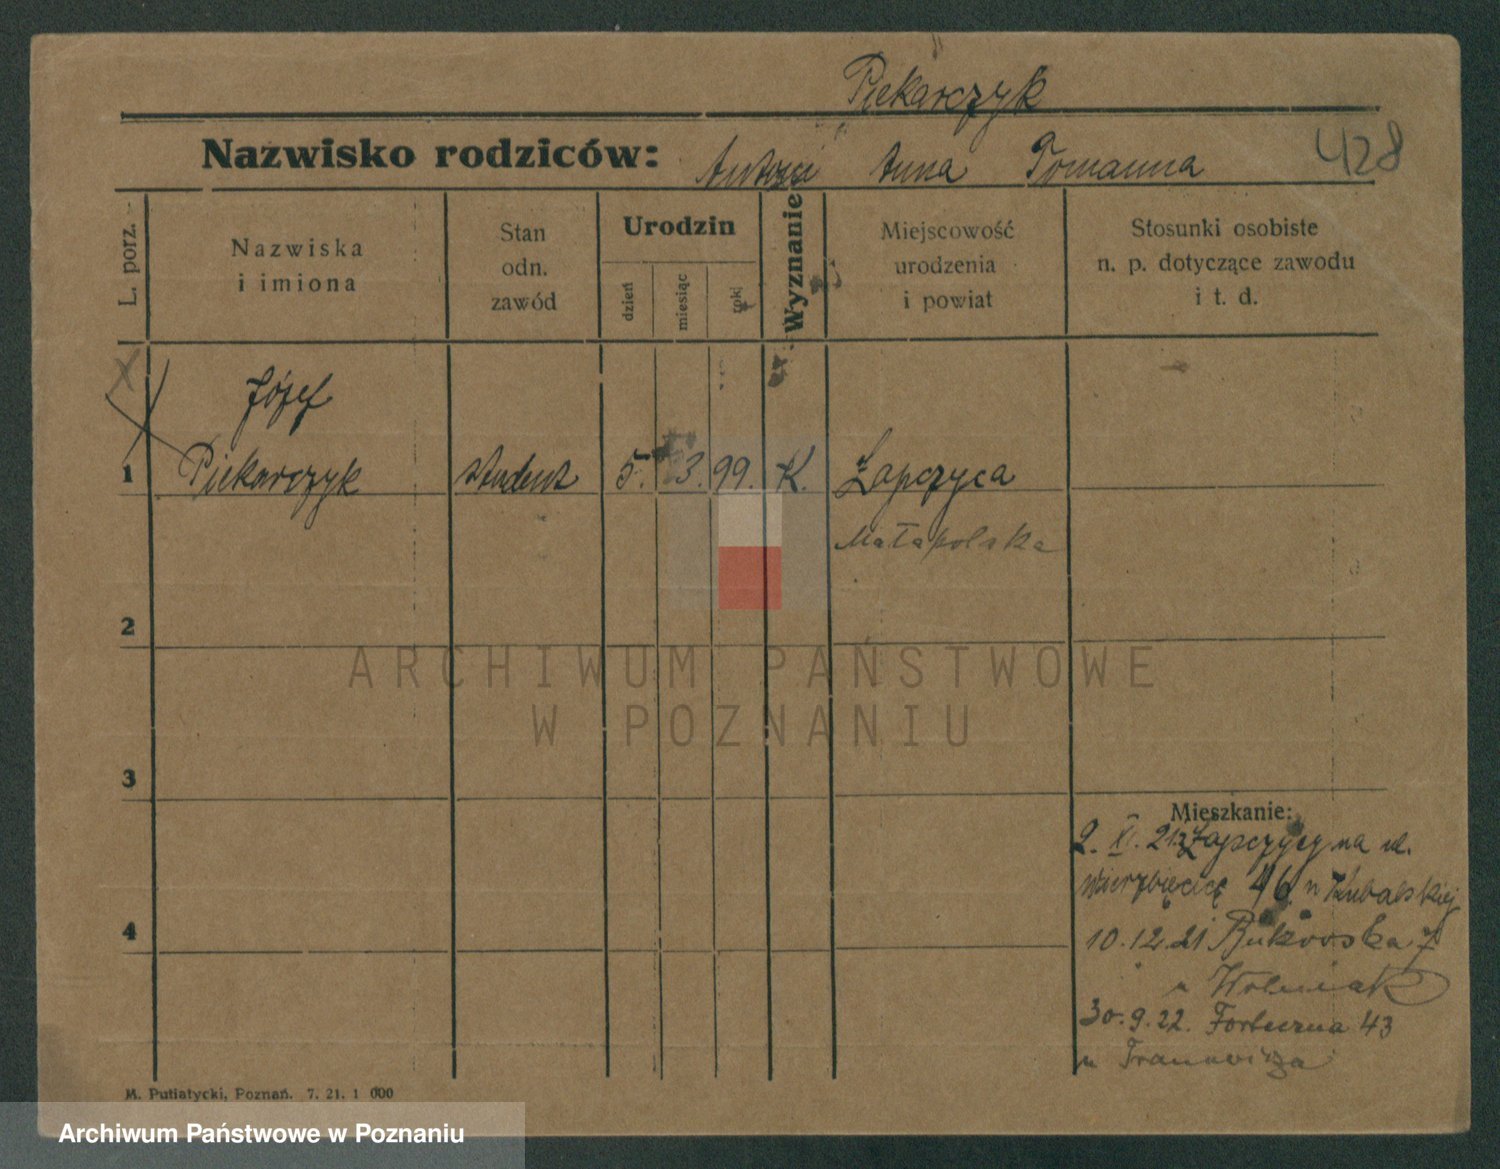 Piekarczyk
Nazwisko rodziców: Antoni Anna Pomanna
428
L. porz.
Nazwiska
i imiona
Stan
odn.
zawód
Urodzin
dzień
miesiąc
rok
Wyznanie
Miejscowość
urodzenia
i powiat
Stosunki osobiste
n. p. dotyczące zawodu
i t. d.
Józef
1 Piekarczyk student 5. 3. 99. K. Łapczyca
Małopolska
2
3
Mieszkanie:
2. XI. 21 z Łapczycy na ul.
Wierzbięcice 46
4
10.12.21 Bukowska 7
u Wolniak
30.9.22. Forteczna 43
u
M. Putiatycki, Poznań. 7. 21. 1 000
ARCHIWUM PAŃSTWOWE
W POZNANIU
Archiwum Państwowe w Poznaniu